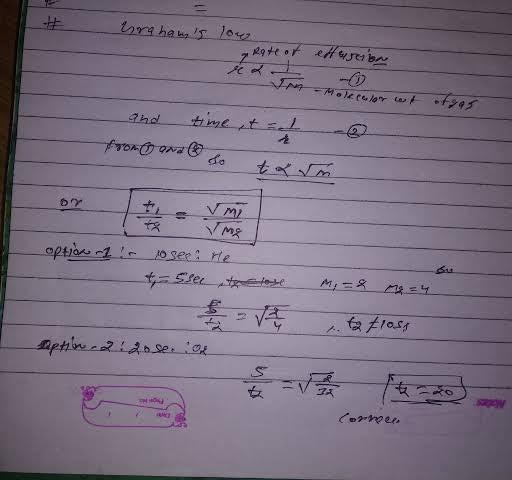 # =
# Graham's law
Rate of effusion
r ∝ 1/√m - ①
- Molecular wt of gas
and time, t = 1/r - ②
from ① and ② so t ∝ √m
or t1/t2 = √m1/√m2
option-1 :- 10sec : He
t1 = 5sec, M1 = 2 M2 = 4 so
5/t2 = √2/4 , t2 ≠ 10s
option-2 : 20sec : O2
5/t2 = √2/32 t2 = 20
correct
Page No.
Date